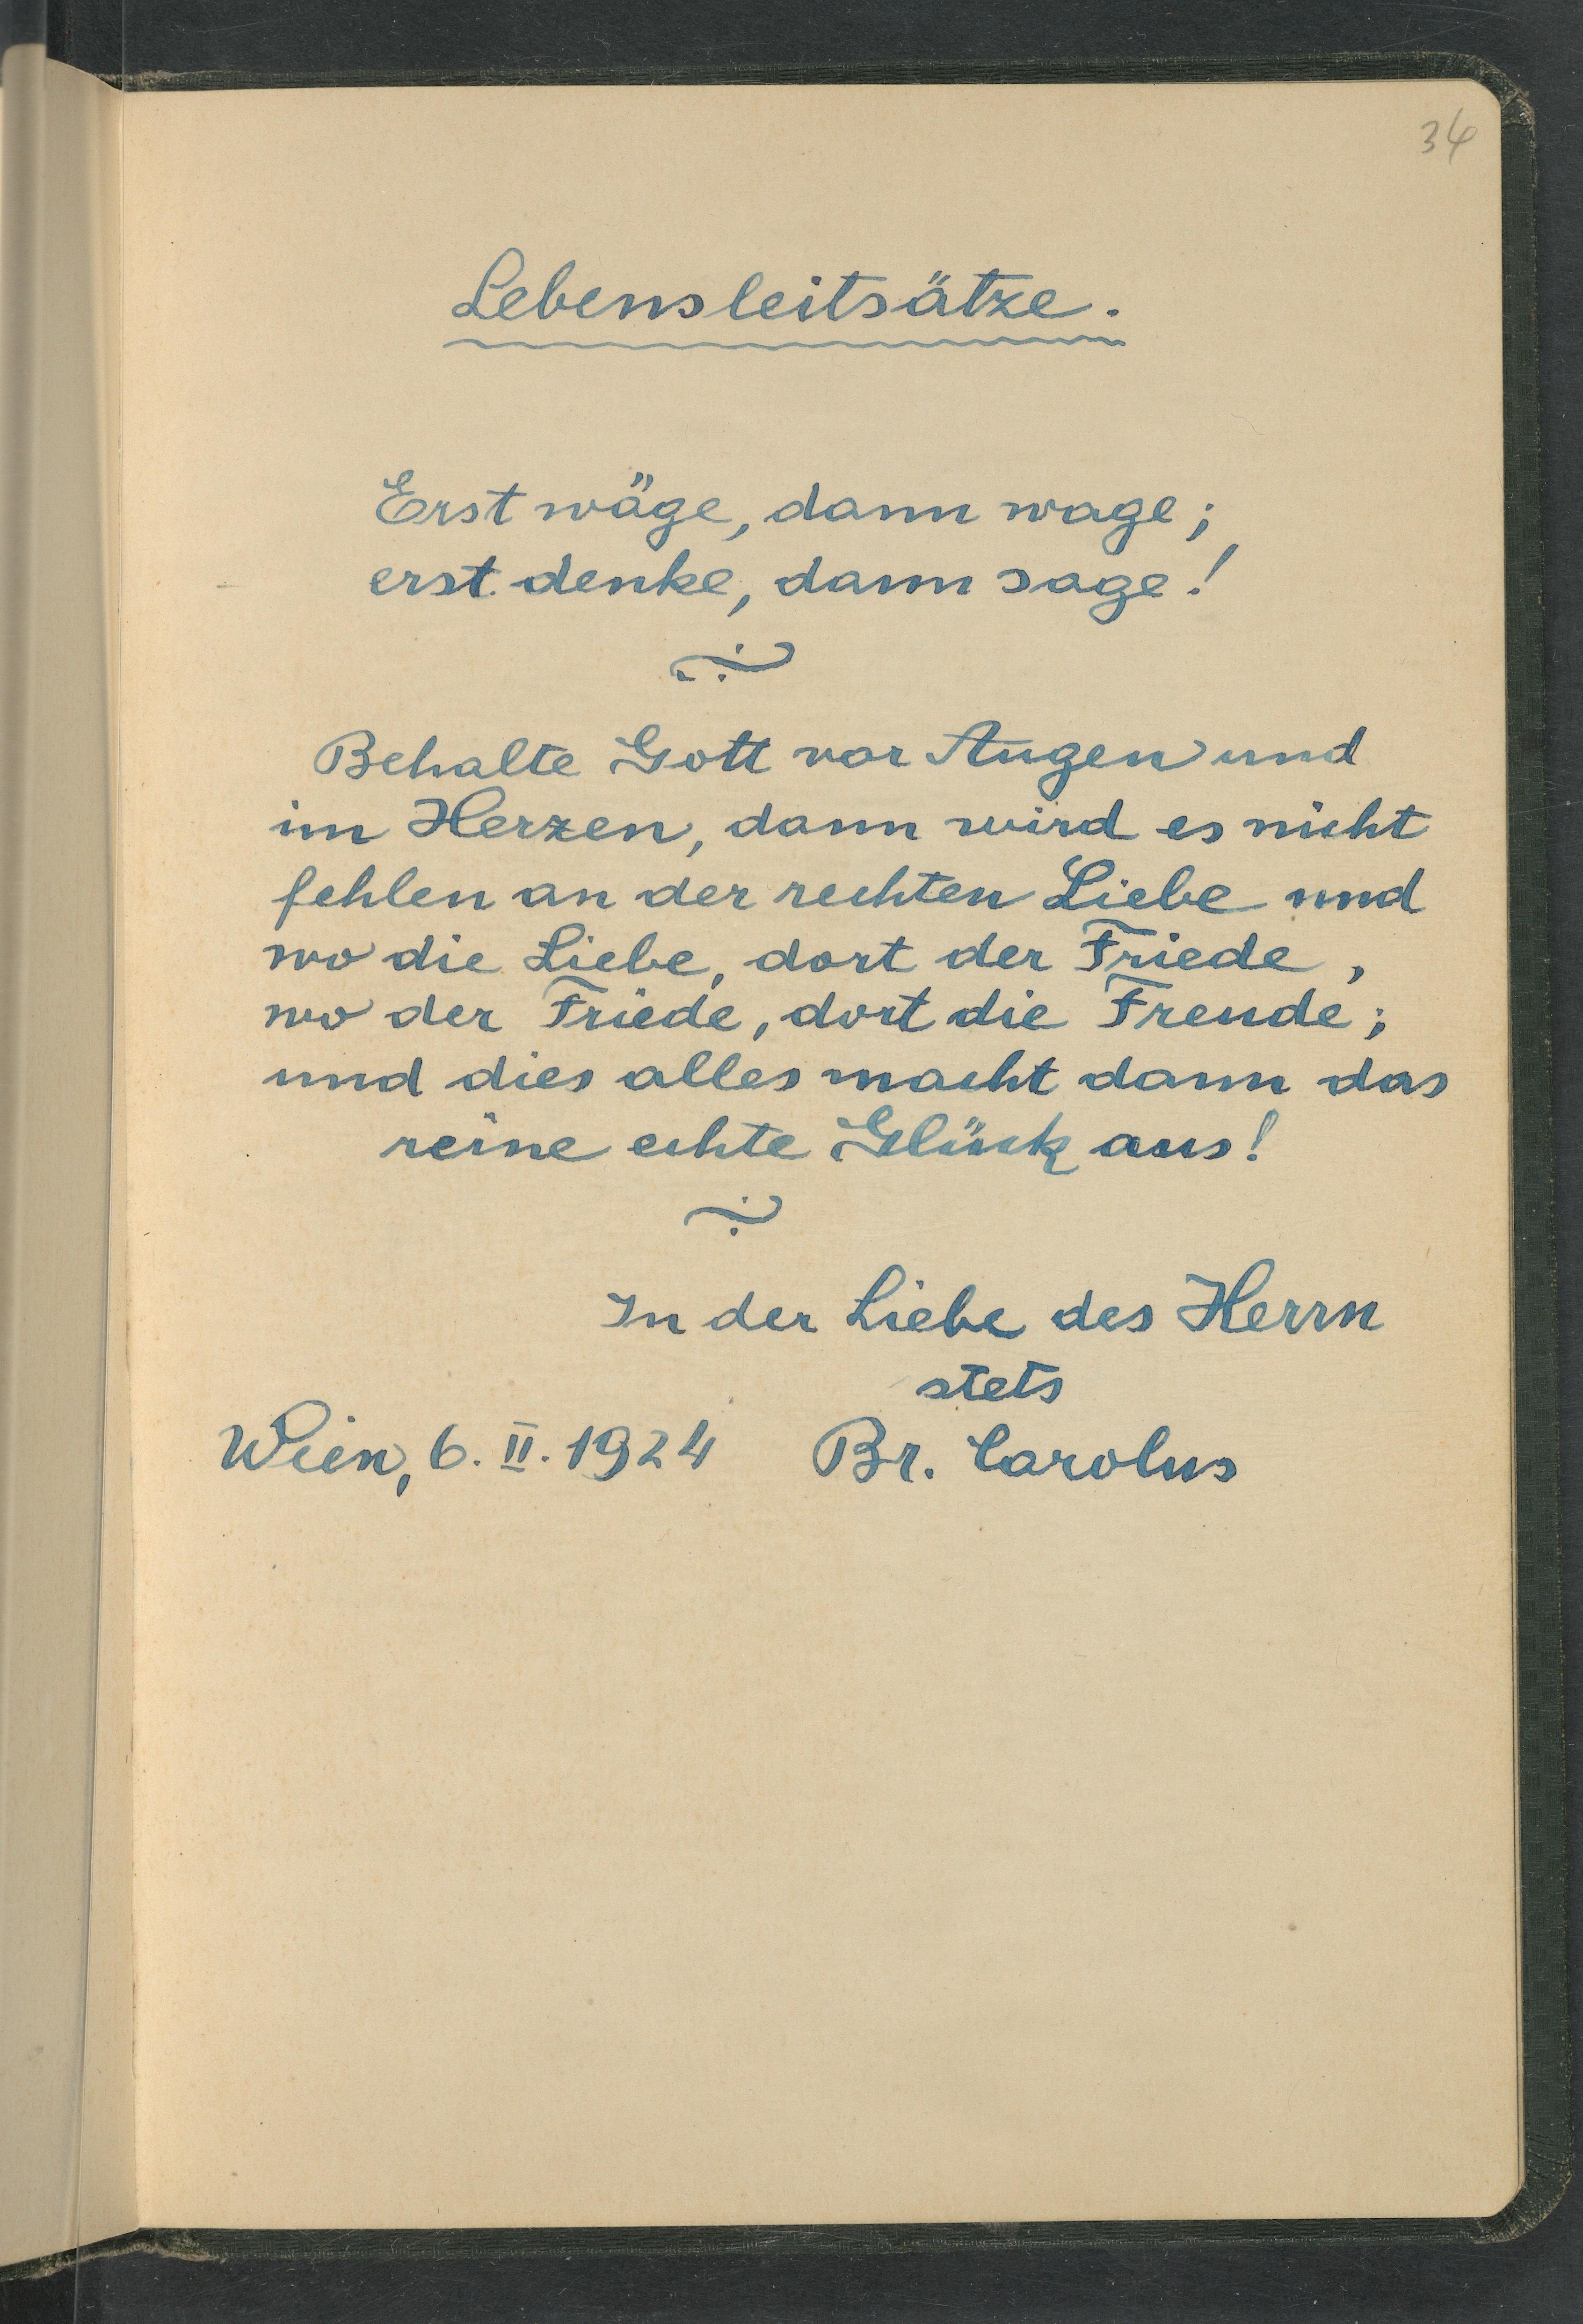 34
Lebensleitsätze.
Erst wäge, dann wage;
erst denke, dann sage!
Behalte Gott vor Augen und
im Herzen, dann wird es nicht
fehlen an der rechten Liebe und
wo die Liebe, dort der Friede,
wo der Friede, dort die Freude;
und dies alles macht dann das
reine echte Glück aus!
In der Liebe des Herrn
stets
Wien, 6. II. 1924 Br. Carolus